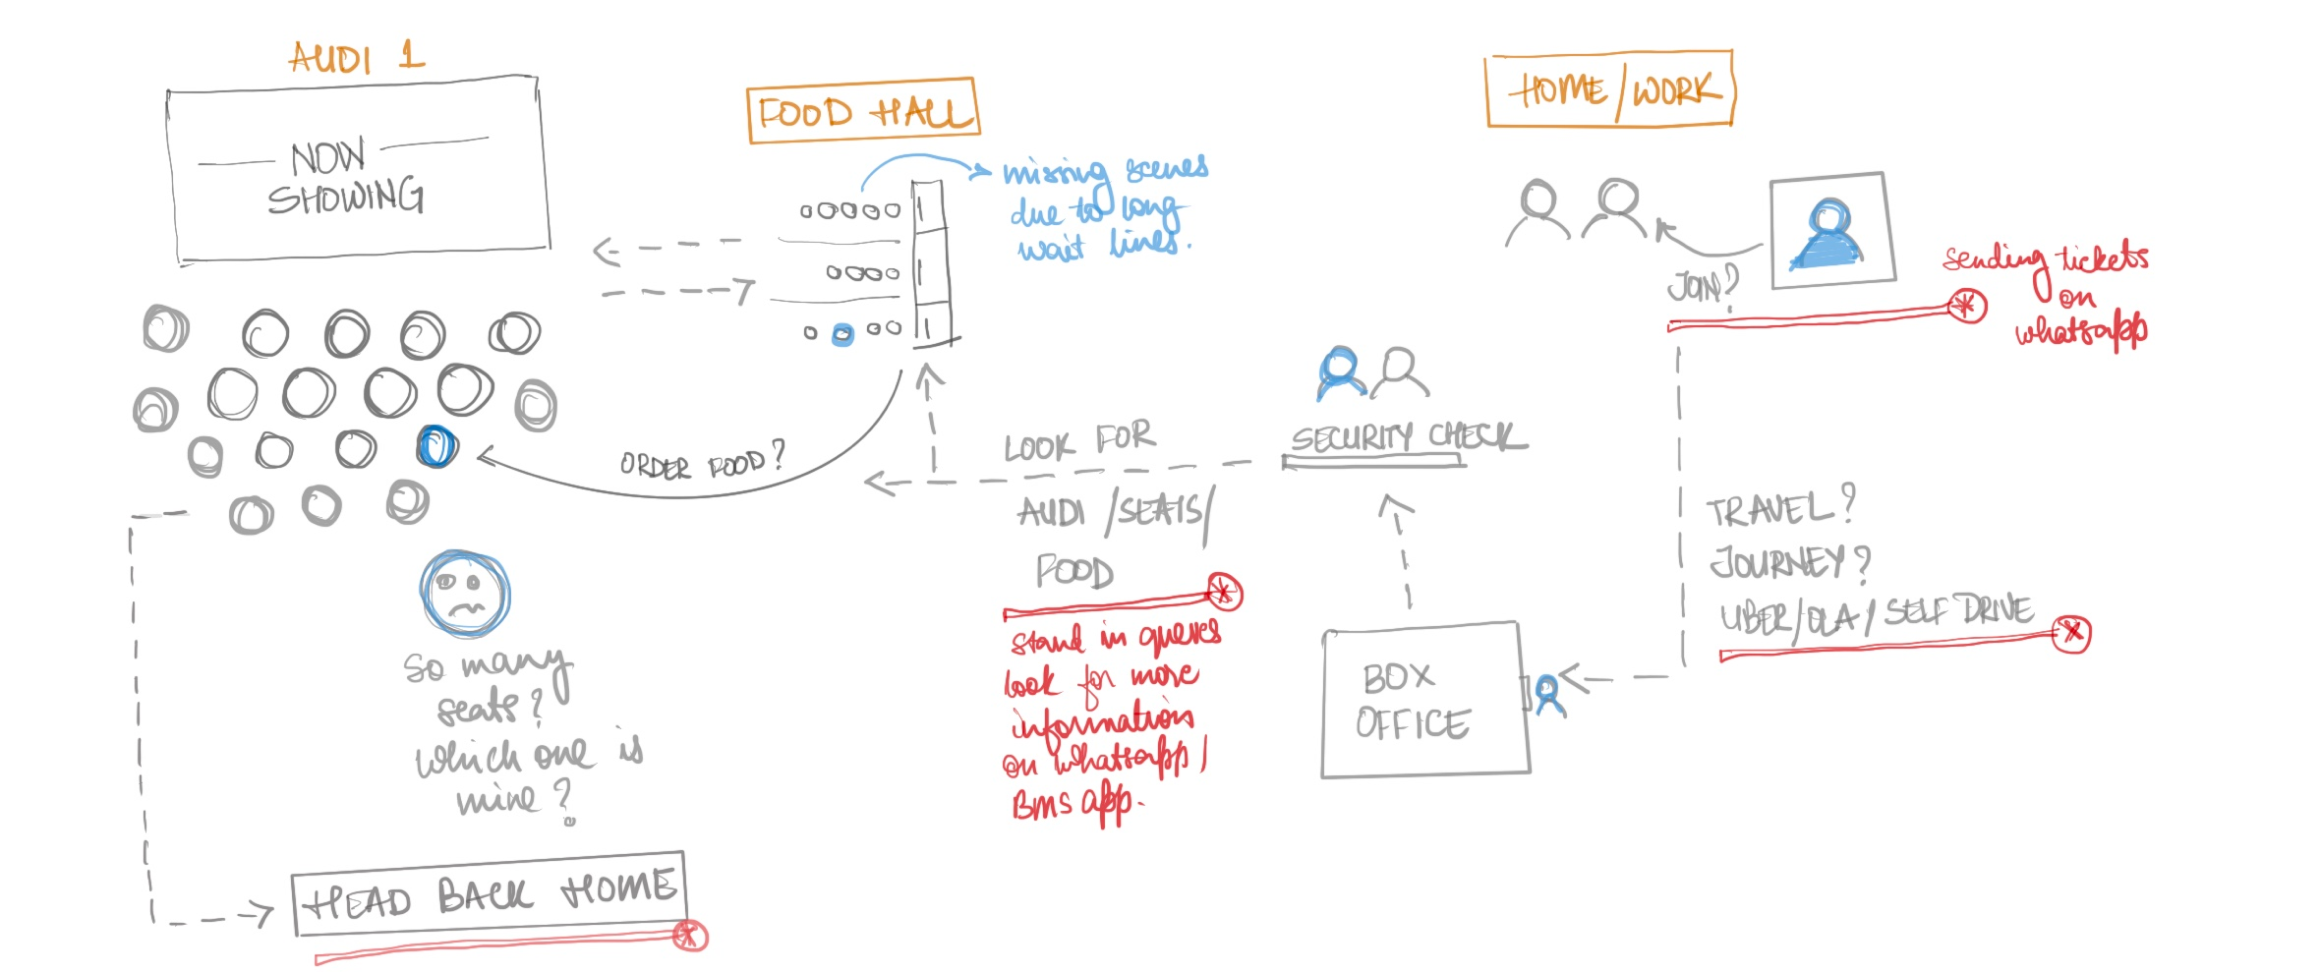 AUDI 1
NOW
SHOWING
FOOD HALL
missing scenes
due to long
wait lines.
HOME/WORK
JOIN?
sending tickets
on
whatsapp
SECURITY CHECK
ORDER FOOD?
LOOK FOR
AUDI /SEATS/
FOOD
stand in queues
look for more
information
on whatsapp/
BMS app.
TRAVEL?
JOURNEY?
UBER/OLA/SELF DRIVE
BOX
OFFICE
So many
seats?
which one is
mine?
HEAD BACK HOME